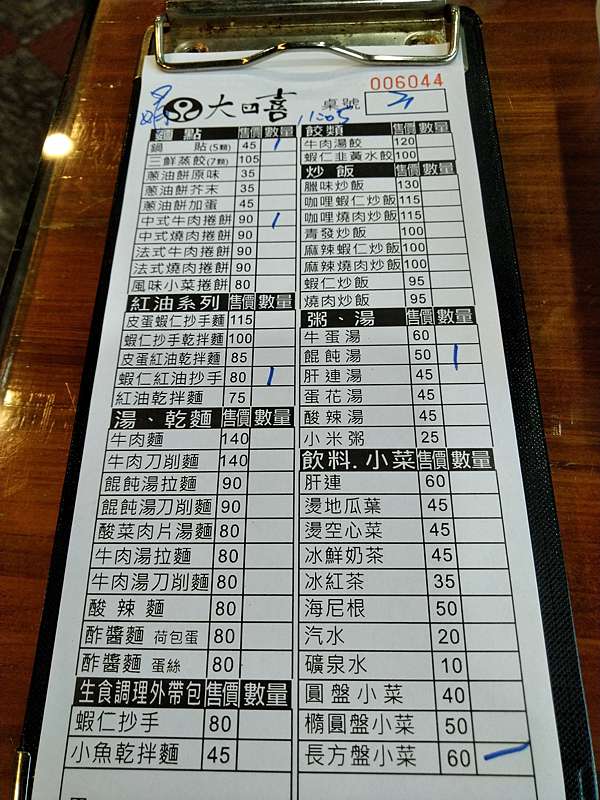 006044
大喜
桌號
11:05
麵 點 售價 數量
鍋 貼(5顆) 45 1
三鮮蒸餃(7顆) 105
蔥油餅原味 35
蔥油餅芥末 35
蔥油餅加蛋 45
中式牛肉捲餅 90 1
中式燒肉捲餅 90
法式牛肉捲餅 90
法式燒肉捲餅 90
風味小菜捲餅 80
紅油系列 售價 數量
皮蛋蝦仁抄手麵 115
蝦仁抄手乾拌麵 100
皮蛋紅油乾拌麵 85
蝦仁紅油抄手 80 1
紅油乾拌麵 75
湯、乾麵 售價 數量
牛肉麵 140
牛肉刀削麵 140
餛飩湯拉麵 90
餛飩湯刀削麵 90
酸菜肉片湯麵 80
牛肉湯拉麵 80
牛肉湯刀削麵 80
酸辣麵 80
酢醬麵 荷包蛋 80
酢醬麵 蛋絲 80
生食調理外帶包 售價 數量
蝦仁抄手 80
小魚乾拌麵 45
餃類 售價 數量
牛肉湯餃 120
蝦仁韭黃水餃 100
炒飯 售價 數量
臘味炒飯 130
咖哩蝦仁炒飯 115
咖哩燒肉炒飯 115
青發炒飯 100
麻辣蝦仁炒飯 100
麻辣燒肉炒飯 100
蝦仁炒飯 95
燒肉炒飯 95
粥、湯 售價 數量
牛蛋湯 60
餛飩湯 50 1
肝連湯 45
蛋花湯 45
酸辣湯 45
小米粥 25
飲料.小菜 售價 數量
肝連 60
燙地瓜葉 45
燙空心菜 45
冰鮮奶茶 45
冰紅茶 35
海尼根 50
汽水 20
礦泉水 10
圓盤小菜 40
橢圓盤小菜 50
長方盤小菜 60 一